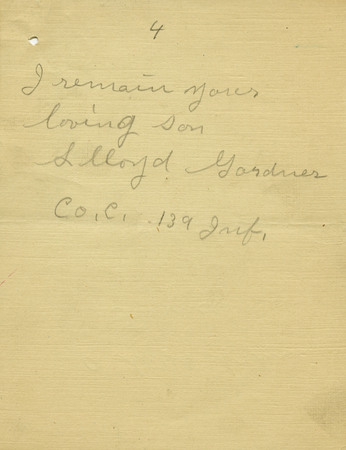 4
I remain your
loving son
Lloyd Gardner
Co. C. 139 Inf.